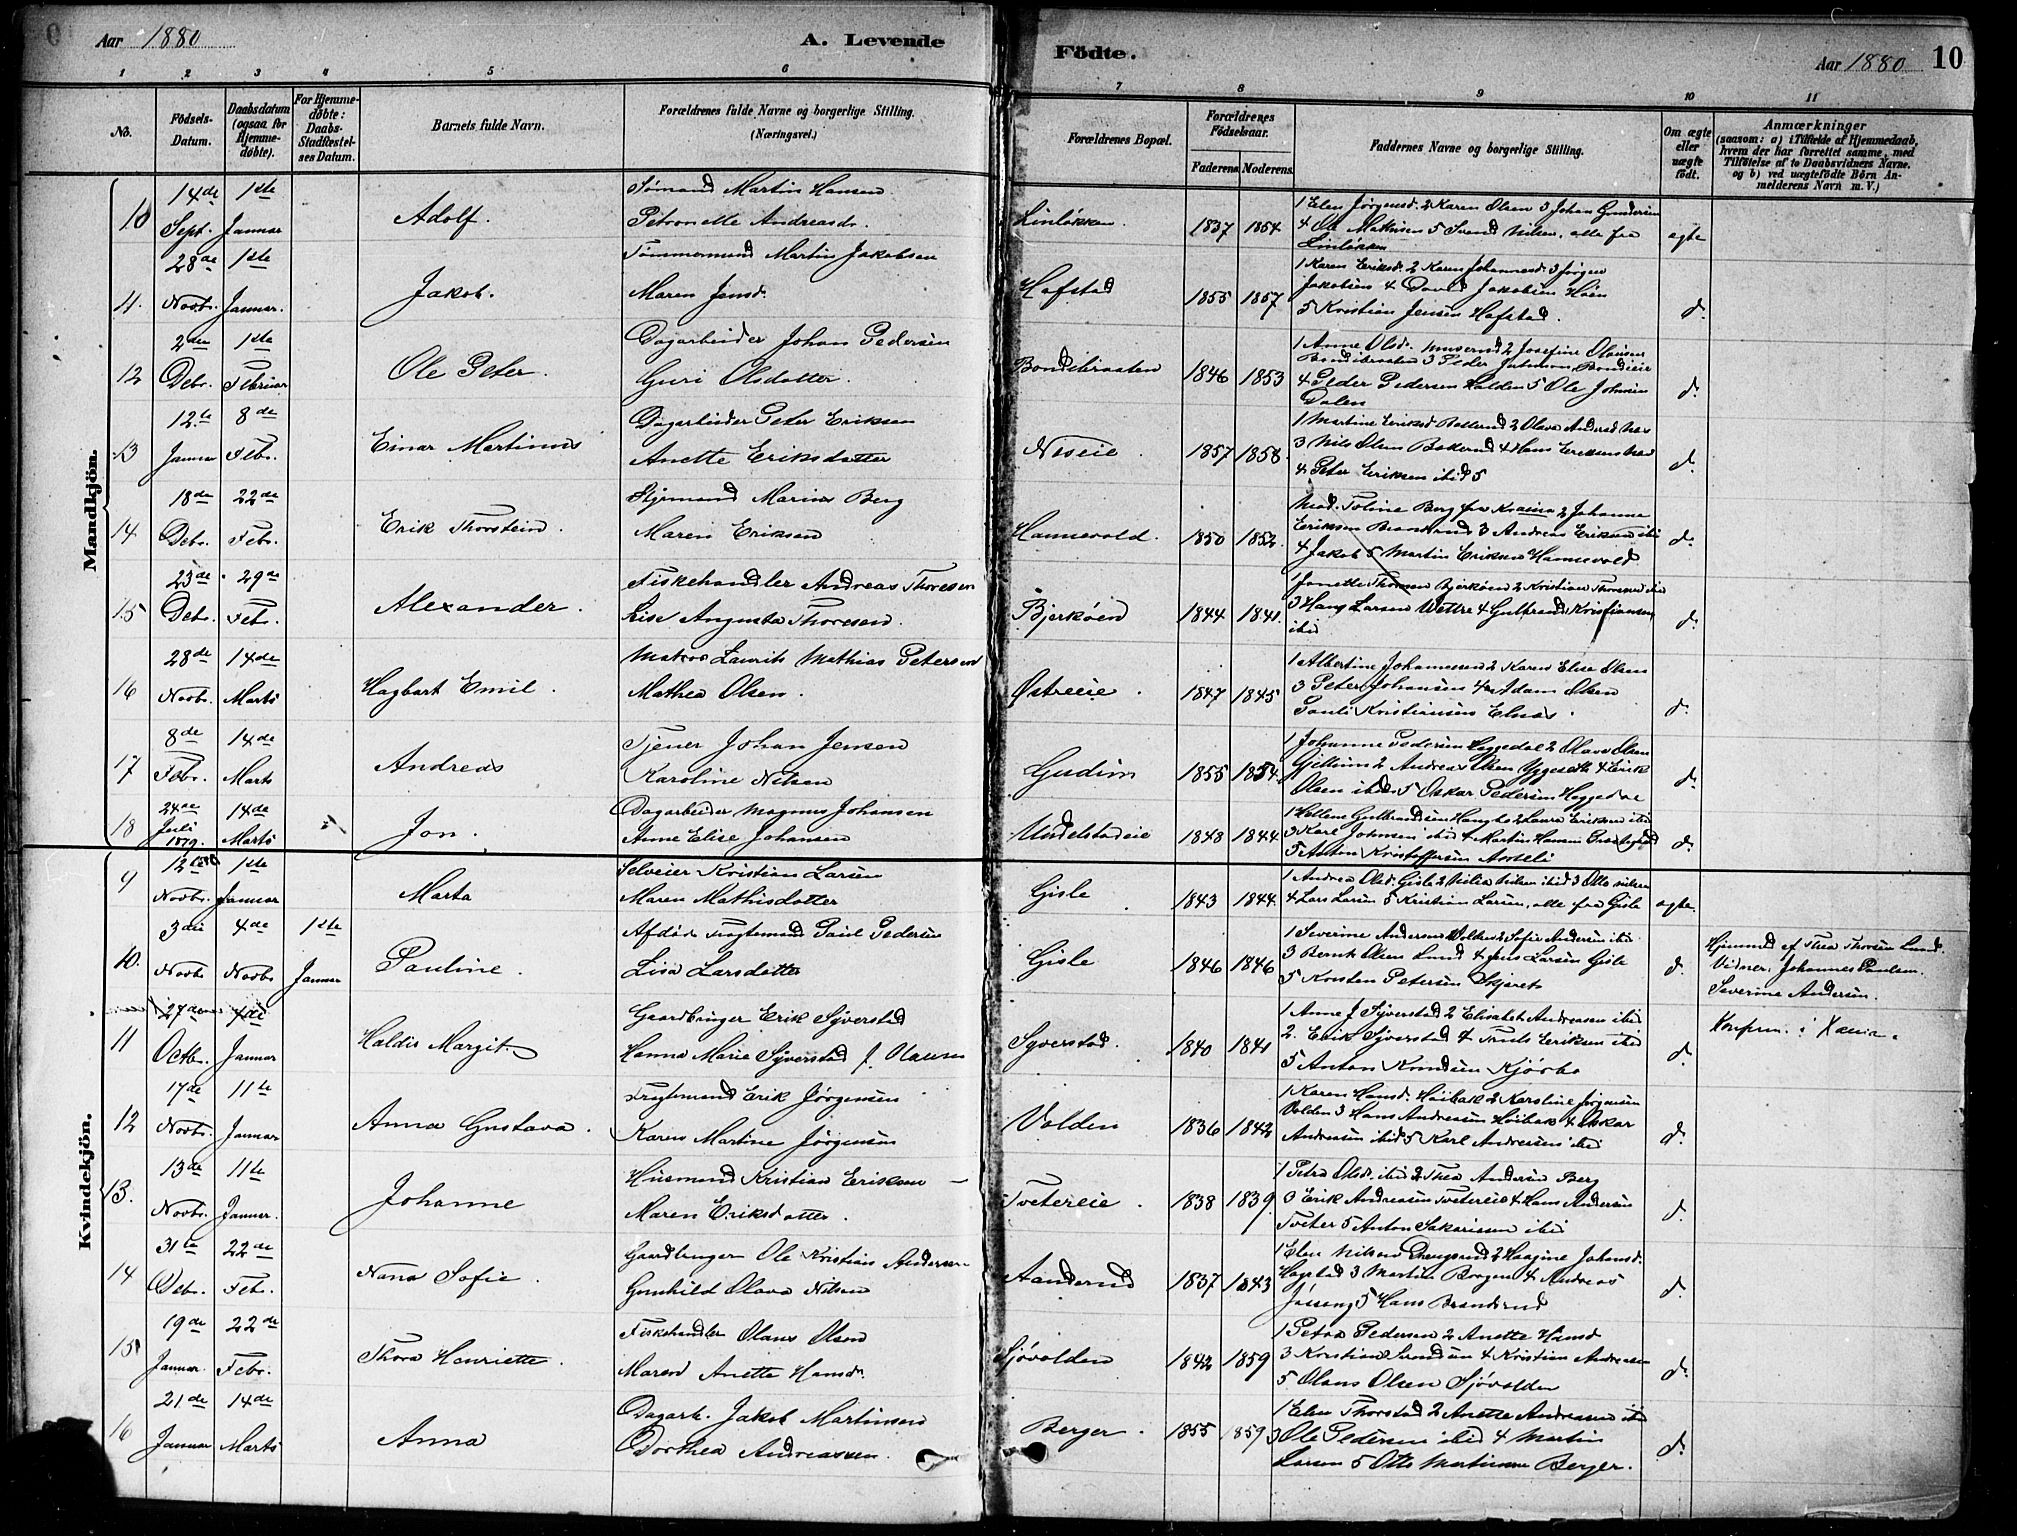 Aar 1880
A. Levende
Födte.
Aar 1880
10
1 2 3 4 5 6 7 8 9 10 11
No.
Födsels-
Datum.
Daabsdatum
(ogsaa for
Hjemme-
döbte).
For Hjemme-
döbte:
Daabs-
Stadfæstel-
ses Datum.
Barnets fulde Navn.
Forældrenes fulde Navne og borgerlige Stilling.
(Næringsvei.)
Forældrenes Bopæl.
Forældrenes
Födselsaar.
Faderens. Moderens.
Faddernes Navne og borgerlige Stilling.
Om ægte
eller
uægte
födt.
Anmærkninger
(saasom: a) i Tilfælde af Hjemmedaab,
hvem der har forrettet samme, med
Tilföielse af to Daabsvidners Navne.
og b) ved uægtefödte Börn An-
melderens Navn m. V.)
Mandkjön.
10 14de Sept. 1ste Januar
Adolf.
Sømand Martin Hansen
Petronette Andreasd.
Linløkken 1837 1854
1 Elen Jørgensd. 2 Karen Olsen 3 Johan Gundersen
4 Ole Mathisen 5 Svend Nilsen, alle fra
Linløkken
ægte
4. 28de Novbr. 1ste Januar.
Jakob.
Tømmermand Martin Jakobsen
Maren Jensd.
Hofstad 1855 1857
1 Karen Eriksd. 2 Karen Johannesd. 3 Jørgen
Jakobsen 4 David Jakobsen Høen
5 Kristian Jensen Hofstad.
d.
12 2den Debr. 1ste Februar
Ole Peter.
Dagarbeider Johan Pedersen
Guri Olsdatter.
Bondibraaten 1846 1853
1 Anne Olsd. 2 Josefine Olausen
Bondibraaten 3 Peder Bondieie
4 Peder Pedersen Halden 5 Ole Johnsen
Dalen
d.
13 12te Januar 8de Febr.
Einar Martinus
Dagarbeider Peter Eriksen
Anette Eriksdatter
Neseie. 1857 1858
1 Martine Eriksd. 2 Olava Andersd. Nes
3 Nils Olsen 4 Hans Eriksen Nes
4 Peter Eriksen ibid 5
d.
14 18de Debr. 22de Febr.
Erik Thorstein.
Styrmand Marius Berg
Maren Eriksen
Hannevold. 1850 1852.
Mad. Toline Berg fra Krania 2 Johanne
Eriksen 3 Andreas Eriksen ibi
4 Jakob 5 Martin Eriksen Hannevold
d.
15 23de Debr. 29de Febr.
Alexander.
Fiskehandler Andreas Thoresen
Lise Augusta Thoresen.
Bjerkøen 1844 1841.
1 Janette Thoresen Bjerkøen 2 Kristian Thoresen ibid
3 Hans Larsen Wettre 4 Gulbrand Kristiansen
ibid
d.
16 28de Novbr. 14de Marts
Hagbart Emil.
Matros Laurits Mathias Petersen
Mathea Olsen.
Østreeie. 1847 1845
1 Albertine Johannesen 2 Karen Elise Olsen
3 Peter Johansen 4 Adam Olsen
Pauli Kristiansen Elnes.
d.
17 8de Febr. 14de Marts
Andreas
Tjener Johan Jensen
Karoline Nilsen
Gudim 1855 1854.
1 Johanne Pedersen Heggedal 2 Olava Olsen
Gjellum 2 Andreas Olsen Yggeseth 4 Erik
Olsen ibid. 5 Oskar Pedersen Heggedal
d.
18 24de Juli 1879. 14de Marts
Jon.
Dagarbeider Magnus Johansen
Anne Elise Johansen
Undelstadeie 1843 1844.
1 Hellene Gulbrandsen 2 Laura Eriksen ibid
3 Karl Johnsen ibid 4 Martin Hansen
5 Anton Kristoffersen
d.
Kvindekjön.
9 12te Novbr. 1ste Januar
Marta
Selveier Kristian Larsen
Maren Mathisdatter
Gisle 1843 1844.
1 Andrea Olsd. Gisle 2 Nilia Nilsen ibid 3 Otto Nilsen
4 Lars Larsen 5 Kristian Larsen, alle fra Gisle
ægte.
10. 3die Novbr. 4de Novbr. 1ste Januar
Pauline.
Afdøde Fragtemand Paul Pedersen
Lisa Larsdatter
Gisle 1846 1846
1 Severine Andersen 2 Sofie Andersen ibid
3 Bernt Olsen Lund 4 Jens Larsen Gisle
5 Karsten Petersen Skjæret
d.
Hjemmed. af Thea Thorsen Lund.
Vidner. Johannes Paulsen.
Severine Andersen.
11 27de Octbr. 4de Januar
Haldis Margit.
Gaardbruger Erik Syverstad
Hanna Marie Syverstad f. Olausen
Syverstad. 1840 1841
1 Anne J Syverstad 2 Elisabet Andreasen ibid
2. Erik Syverstad 4 Truls Eriksen ibid
5 Anton Knudsen Kjørbo
d.
Konfirm. i Xania.
12 17de Novbr. 11te Januar
Anna Gustava.
Fragtemand Erik Jørgensen
Karen Martine Jørgensen
Volden 1836 1842
1 Karen Hansd. Høibak 2 Karoline Jørgensen
Volden 3 Hans Andreasen Høibak 4 Oskar
Andreasen ibid 5 Karl Andreasen ibi
d.
13. 13de Novbr. 11te Januar.
Johanne
Husmand Kristian Eriksen
Maren Eriksdatter.
Tvetereie. 1838 1839.
1 Petra Olsd. ibid 2 Thea Andersen Berg
3 Erik Andreasen Tvetereie 4 Hans Andersen
Tveter 5 Anton Sakariasen ibid
d.
14 31te Debr. 22de Febr.
Nana Sofie.
Gaardbruger Ole Kristian Andersen
Gunhild Olava Nilsen
Aanderud 1837 1843
1 Elen Nilsen Drengsrud 2 Haagine Johansd.
Hogstad 3 Martin Borgen 4 Andreas
Jøsseng 5 Hans Brendsrud
d.
15 19de Januar. 22de Febr.
Thora Henriette.
Fiskehandler Olaus Olsen
Maren Anette Hansdr
Sjøvolden 1842 1859
1 Petra Pedersen 2 Anette Hansd
3 Kristian Svendsen 4 Kristian Andreasen
5 Olaus Olsen Sjøvolden
d.
16 21de Januar 14de Marts
Anna
Dagarb. Jakob Martinsen
Dorthea Andreassen.
Berger. 1855 1859
1 Elen Thorstad 2 Anette Andreasen ibid
3 Ole Pedersen ibid 4 Martin
Larsen 5 Otto Martinsen Berger.
d.